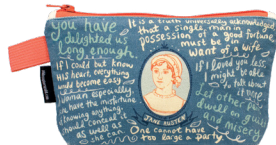 you have
delighted us
long enough.
If I could but know
His heart, everything
would become easy
Woman especially,
have the misfortune
knowing anything,
should conceal it
as well as
she can
It is a truth universally acknowledged,
that a single man in
possession of a good fortune,
must be in
want of a wife
If I loved you less,
might be able
to talk about
Let other pens
dwell on guilt
and misery
JANE AUSTEN
One cannot have
too large a party